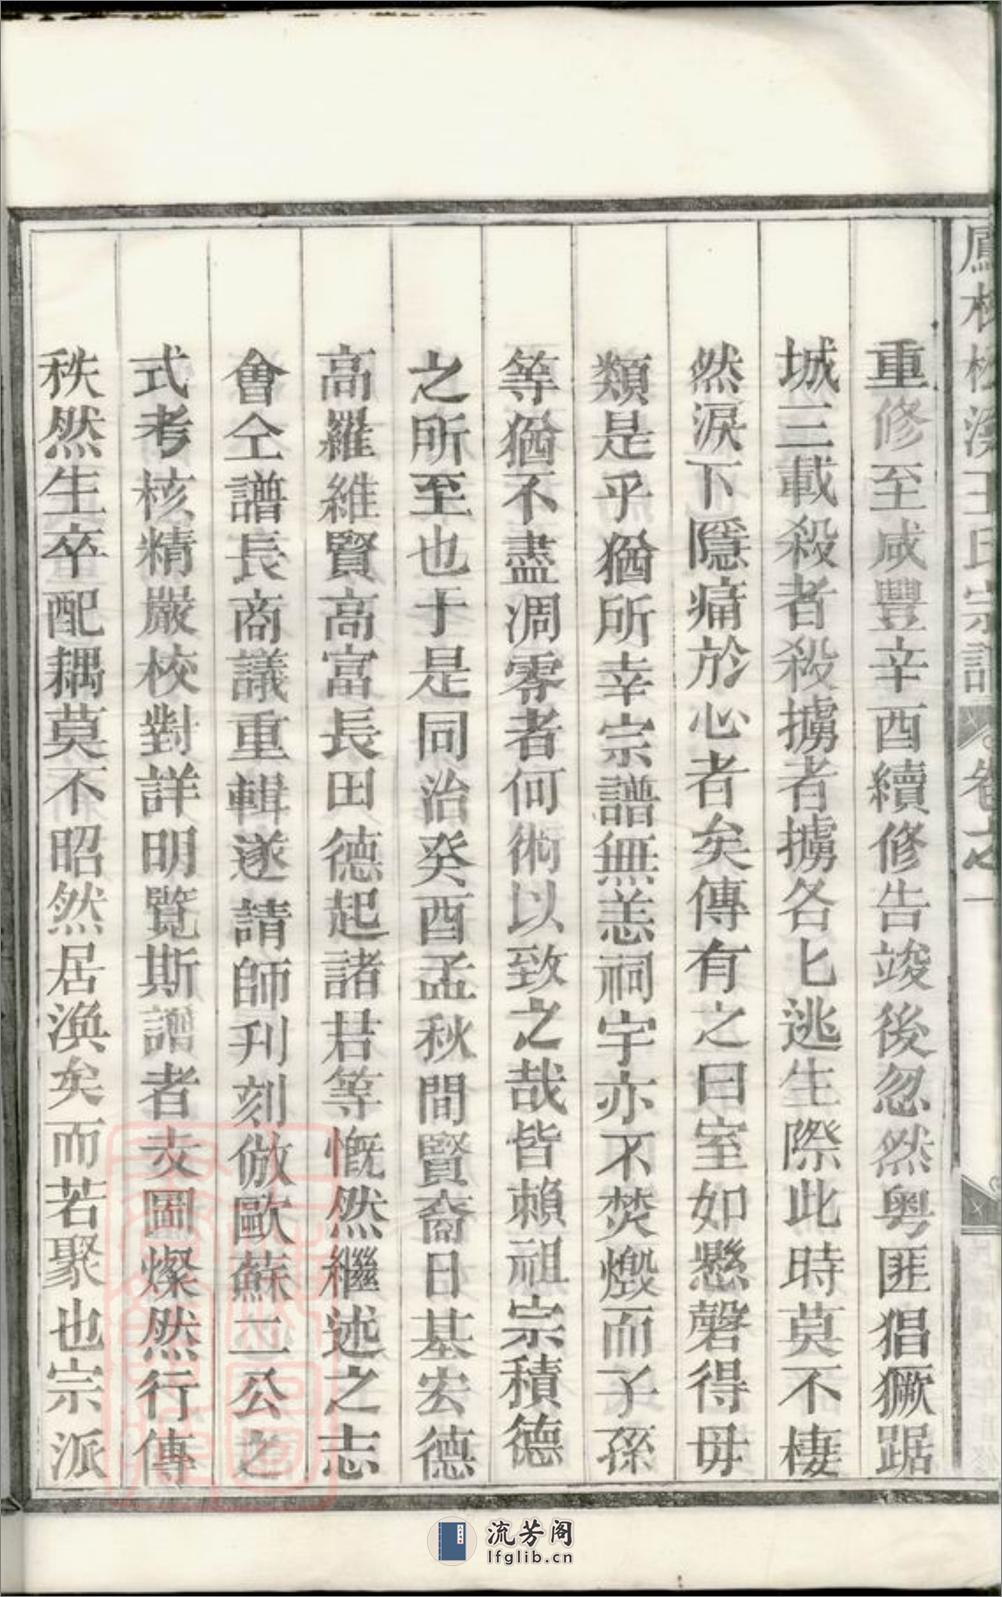 重修至咸豐辛酉續修告竣後忽然粵匪猖獗踞
城三載殺者殺擄者擄各匕逃生際此時莫不棲
然淚下隱痛於心者矣傳有之曰室如懸磬得毋
類是乎猶所幸宗譜無恙祠宇亦不焚燬而子孫
等猶不盡凋零者何術以致之哉皆賴祖宗積德
之所至也于是同治癸酉孟秋間賢裔日基宏德
高羅維賢高富長田德起諸君等慨然繼述之志
會仝譜長商議重輯遂請師刋刻倣歐蘇二公之
式考核精嚴校對詳明覽斯譜者支圖燦然行傳
秩然生卒配耦莫不昭然居渙矣而若聚也宗派
流芳阁
lfglib.cn